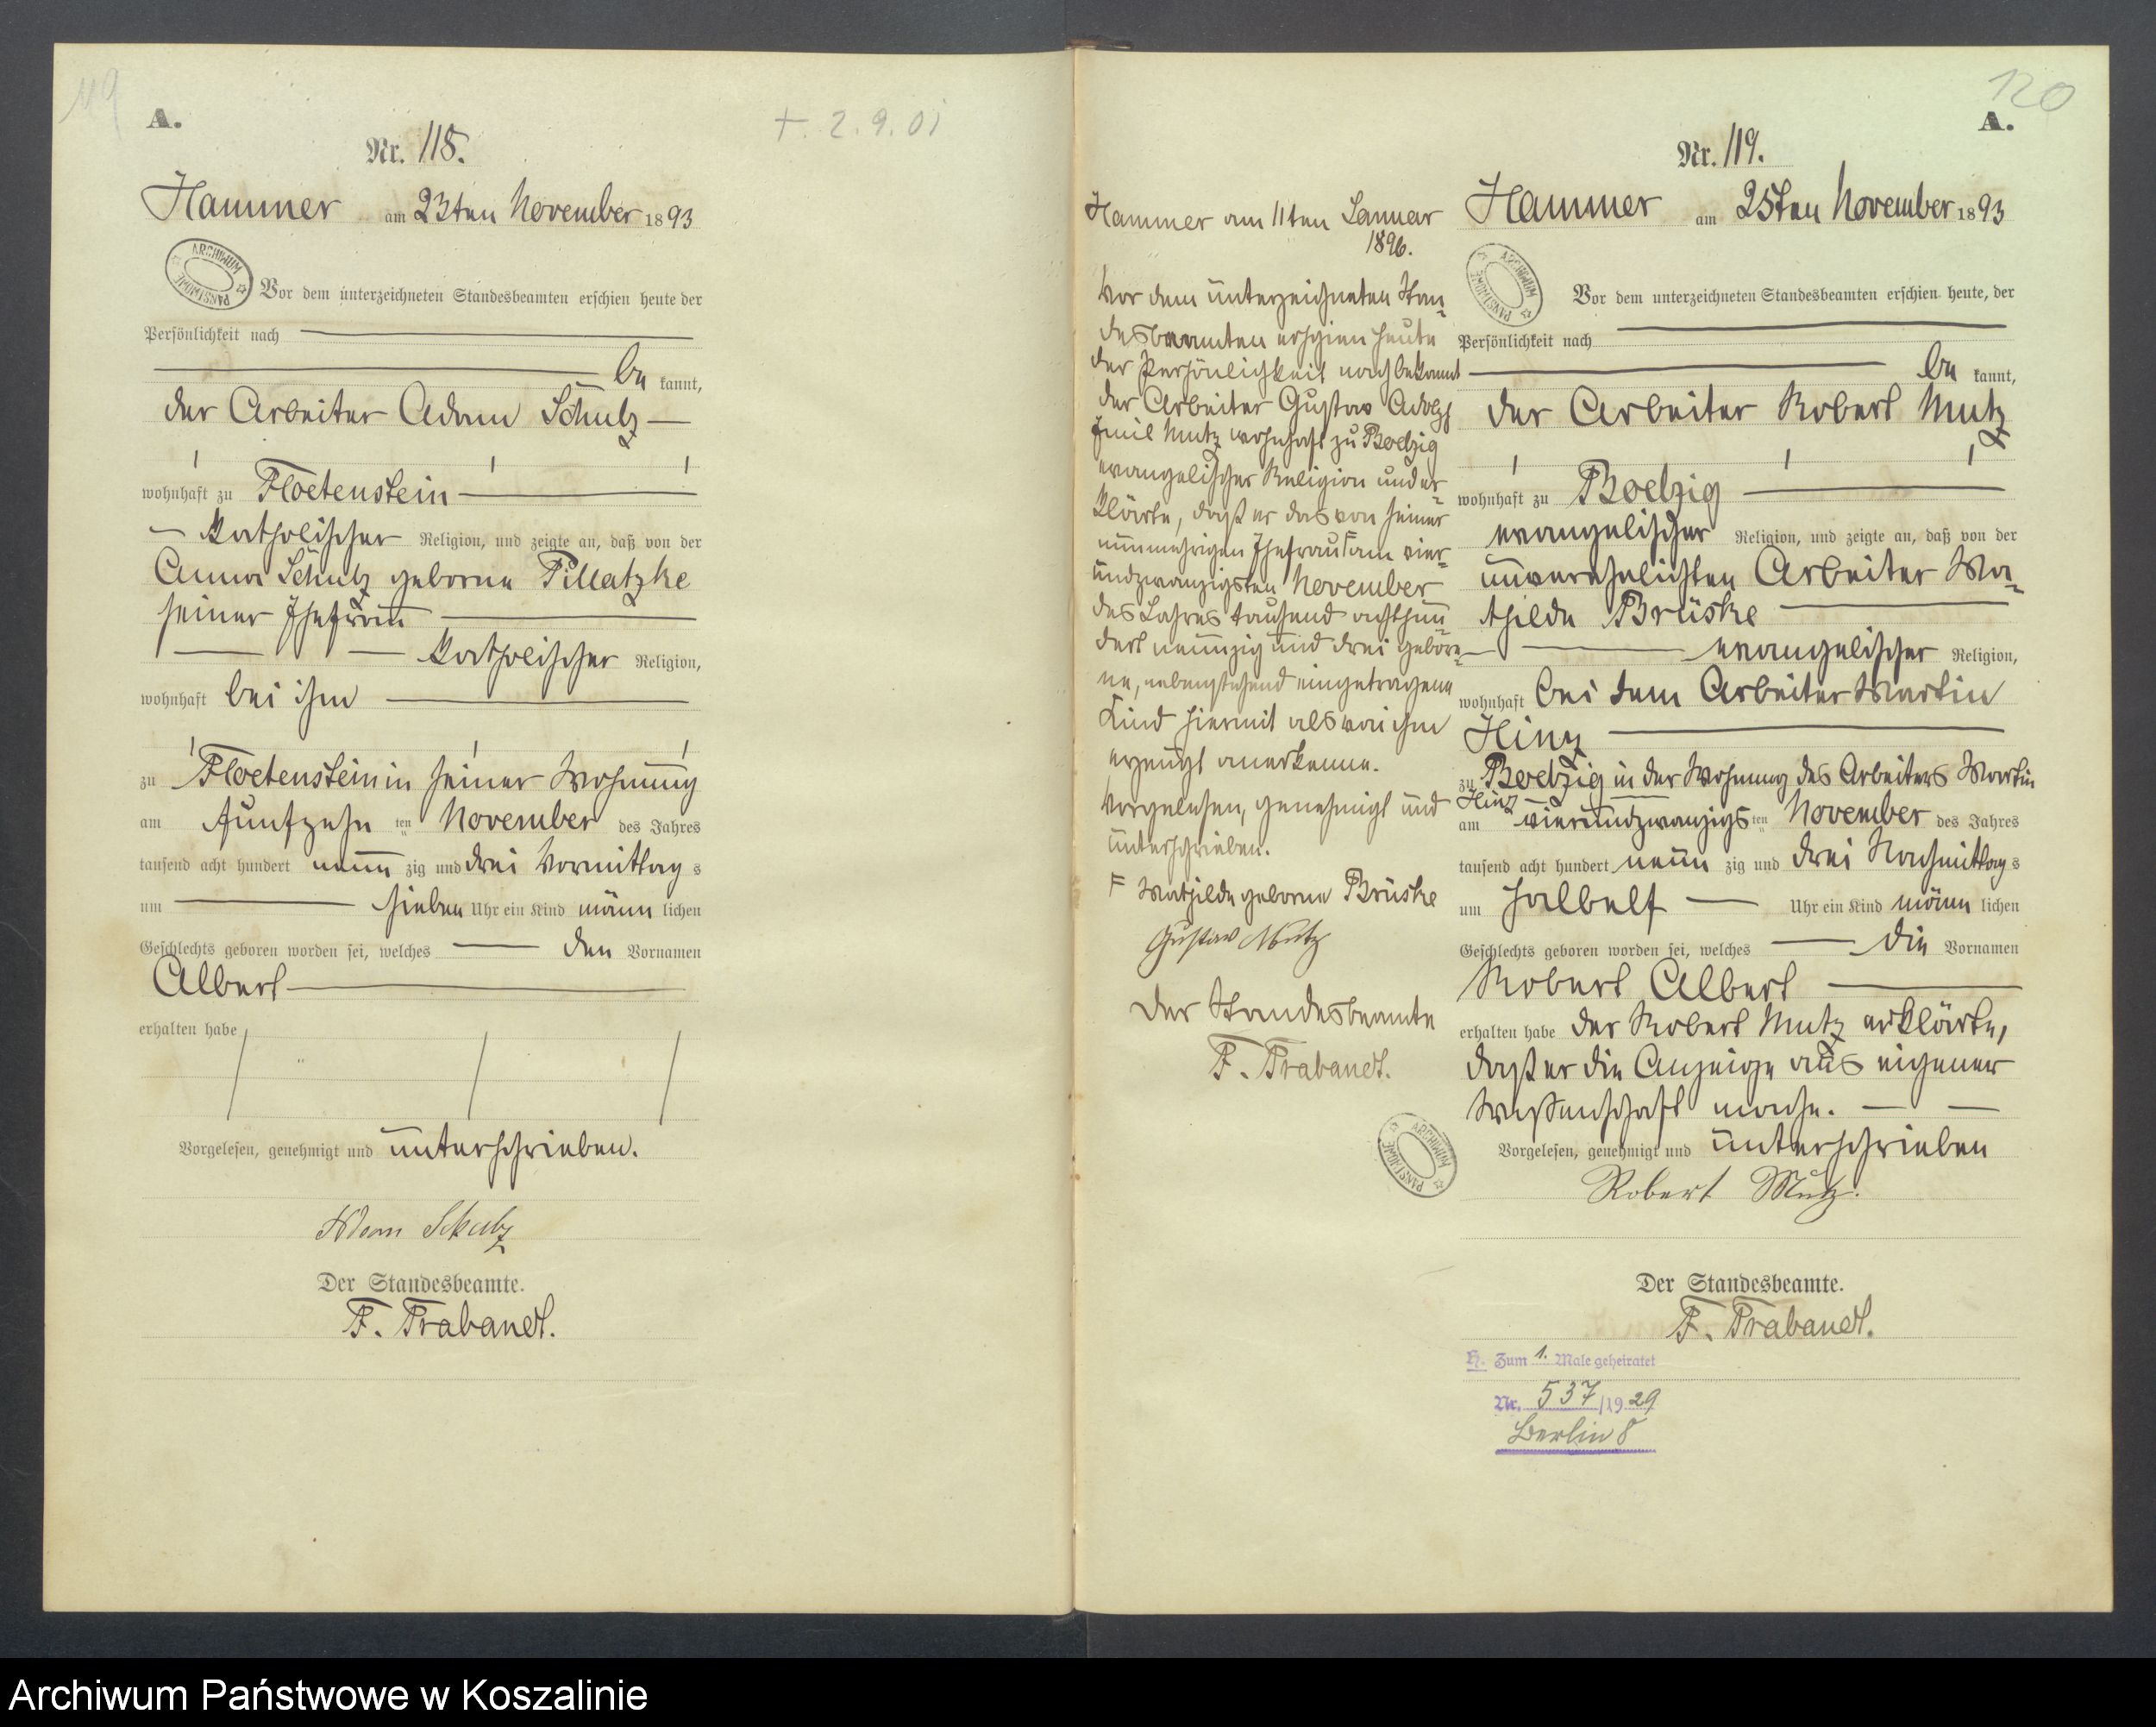 119
A.
+. 2. 9. 01
Nr. 118.
Hammer am 23ten November 1893
ARCHIWUM PAŃSTWOWE
Vor dem unterzeichneten Standesbeamten erschien heute der
Persönlichkeit nach
be kannt,
der Arbeiter Adam Schulz
wohnhaft zu Floetenstein
katholischer Religion, und zeigte an, daß von der
Anna Schulz geborne Pillatzke
seiner Ehefrau
katholischer Religion,
wohnhaft bei ihm
zu Floetenstein in seiner Wohnung
am fünfzehn ten November des Jahres
tausend acht hundert neun zig und drei Vormittag s
um sieben Uhr ein Kind männ lichen
Geschlechts geboren worden sei, welches den Vornamen
Albert
erhalten habe
Vorgelesen, genehmigt und unterschrieben.
Adam Schulz
Der Standesbeamte.
F. Trabandt.
Hammer am 11ten Januar
1896.
Vor dem unterzeichneten Stan-
desbeamten erschien heute
der Persönlichkeit nach bekannt
der Arbeiter Gustav Adolf
Emil Mutz wohnhaft zu Boelzig
evangelischer Religion und er-
klärte, daß er das von seiner
nunmehrigen Ehefrau F am vier-
undzwanzigsten November
des Jahres tausend achthun-
dert neunzig und drei gebore-
ne, nebenstehend eingetragene
Kind hiermit als von ihm
erzeugt anerkenne.
Vorgelesen, genehmigt und
unterschrieben.
F Mathilde geborne Brüske
Gustav Mutz
Der Standesbeamte
F. Trabandt.
ARCHIWUM PAŃSTWOWE
120
A.
Nr. 119.
Hammer am 25ten November 1893
ARCHIWUM PAŃSTWOWE
Vor dem unterzeichneten Standesbeamten erschien heute, der
Persönlichkeit nach
be kannt,
der Arbeiter Robert Mutz
wohnhaft zu Boelzig
evangelischer Religion, und zeigte an, daß von der
unverehelichten Arbeiter Ma-
thilde Brüske
evangelischer Religion,
wohnhaft bei dem Arbeiter Martin
Hinz
zu Boelzig in der Wohnung des Arbeiters Martin
Hinz
am vierundzwanzigs ten November des Jahres
tausend acht hundert neun zig und drei Nachmittag s
um halbelf Uhr ein Kind männ lichen
Geschlechts geboren worden sei, welches die Vornamen
Robert Albert
erhalten habe der Robert Mutz erklärte,
daß er die Anzeige aus eigener
Wissenschaft mache.
Vorgelesen, genehmigt und unterschrieben
Robert Mutz.
Der Standesbeamte.
F. Trabandt.
H. Zum 1. Male geheiratet
Nr. 537/1929
Berlin 8
Archiwum Państwowe w Koszalinie